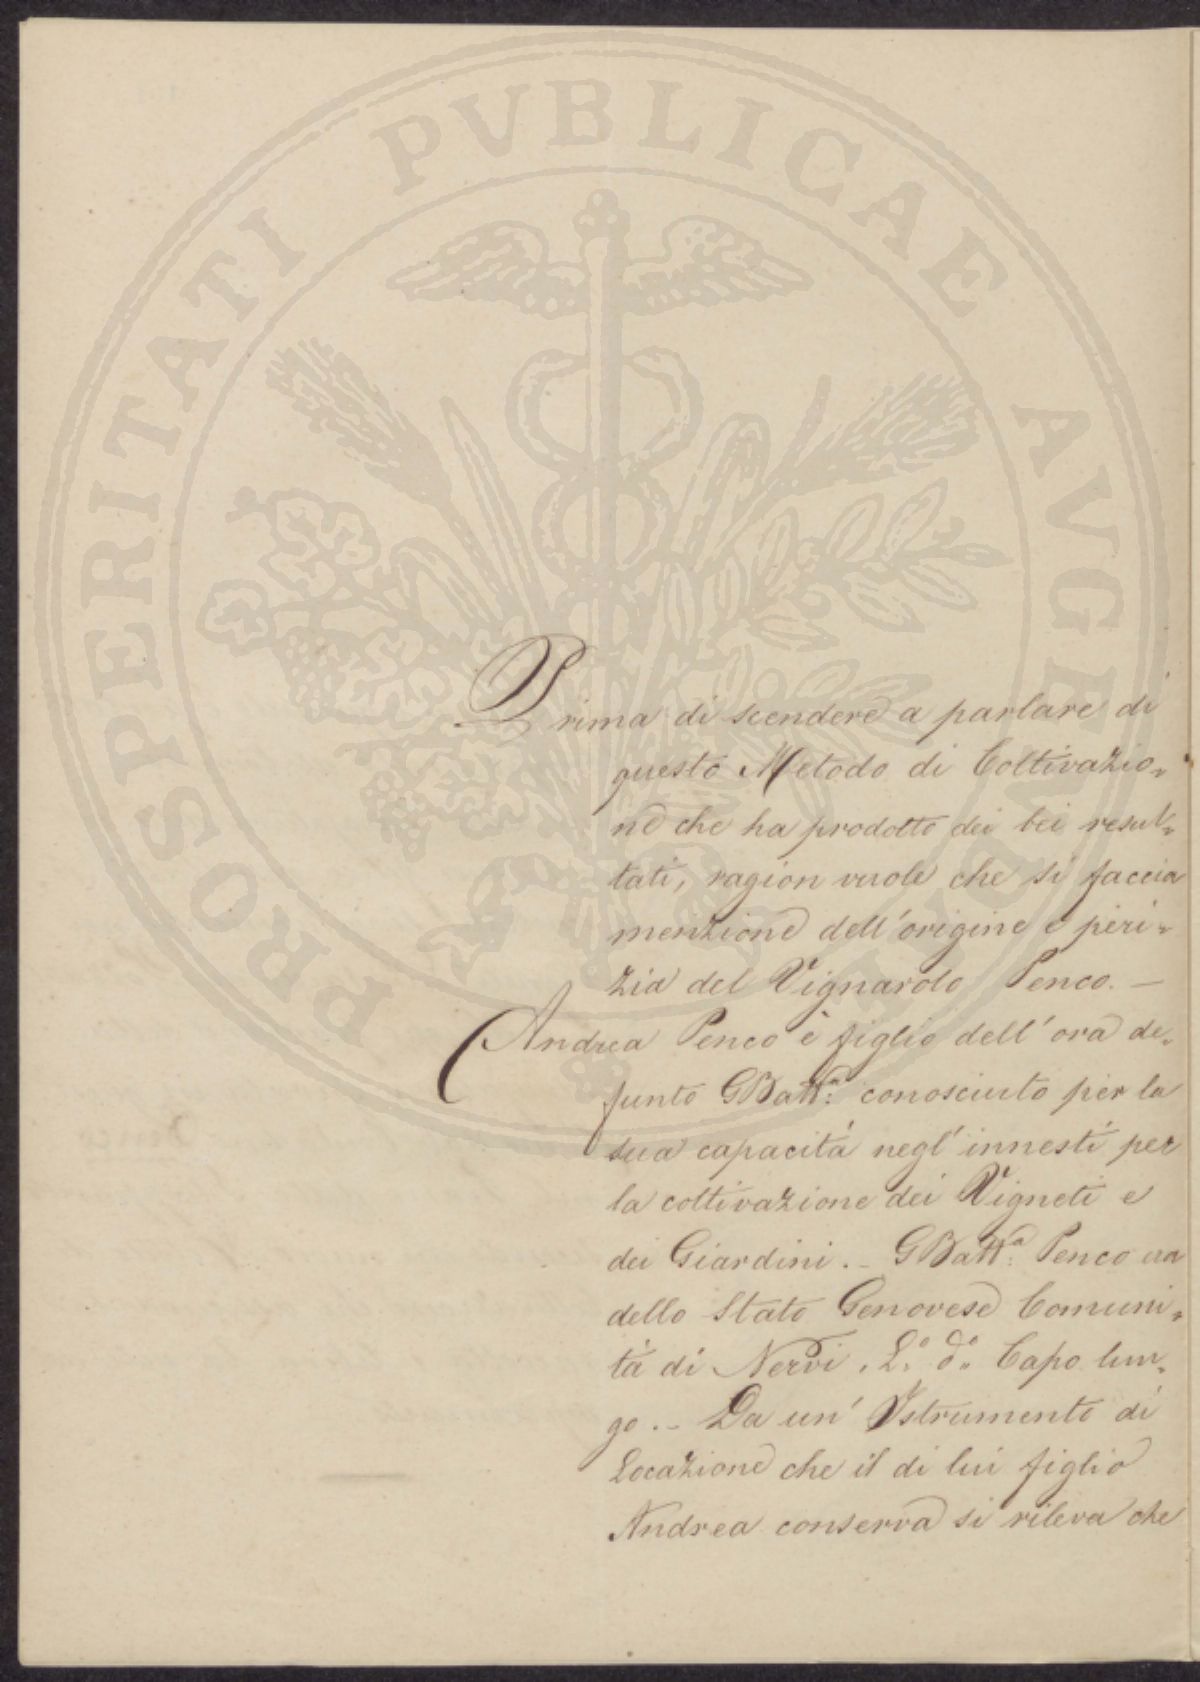 PROSPERITATI PVBLICAE AVGENDAE
Prima di scendere a parlare di
questo Metodo di Coltivazio„
ne che ha prodotto dei bei resul„
tati, ragion vuole che si faccia
menzione dell'origine e peri„
zia del Vignarolo Penco. —
Andrea Penco è figlio dell'ora de„
funto GBatt.ª conosciuto per la
sua capacità negl'innesti per
la coltivazione dei Vigneti e
dei Giardini. – GBatt.ª Penco era
dello Stato Genovese Comuni„
tà di Nervi, L.º d.º Capo lun„
go. – Da un' Istrumento di
Locazione che il di lui figlio
Andrea conserva si rileva che